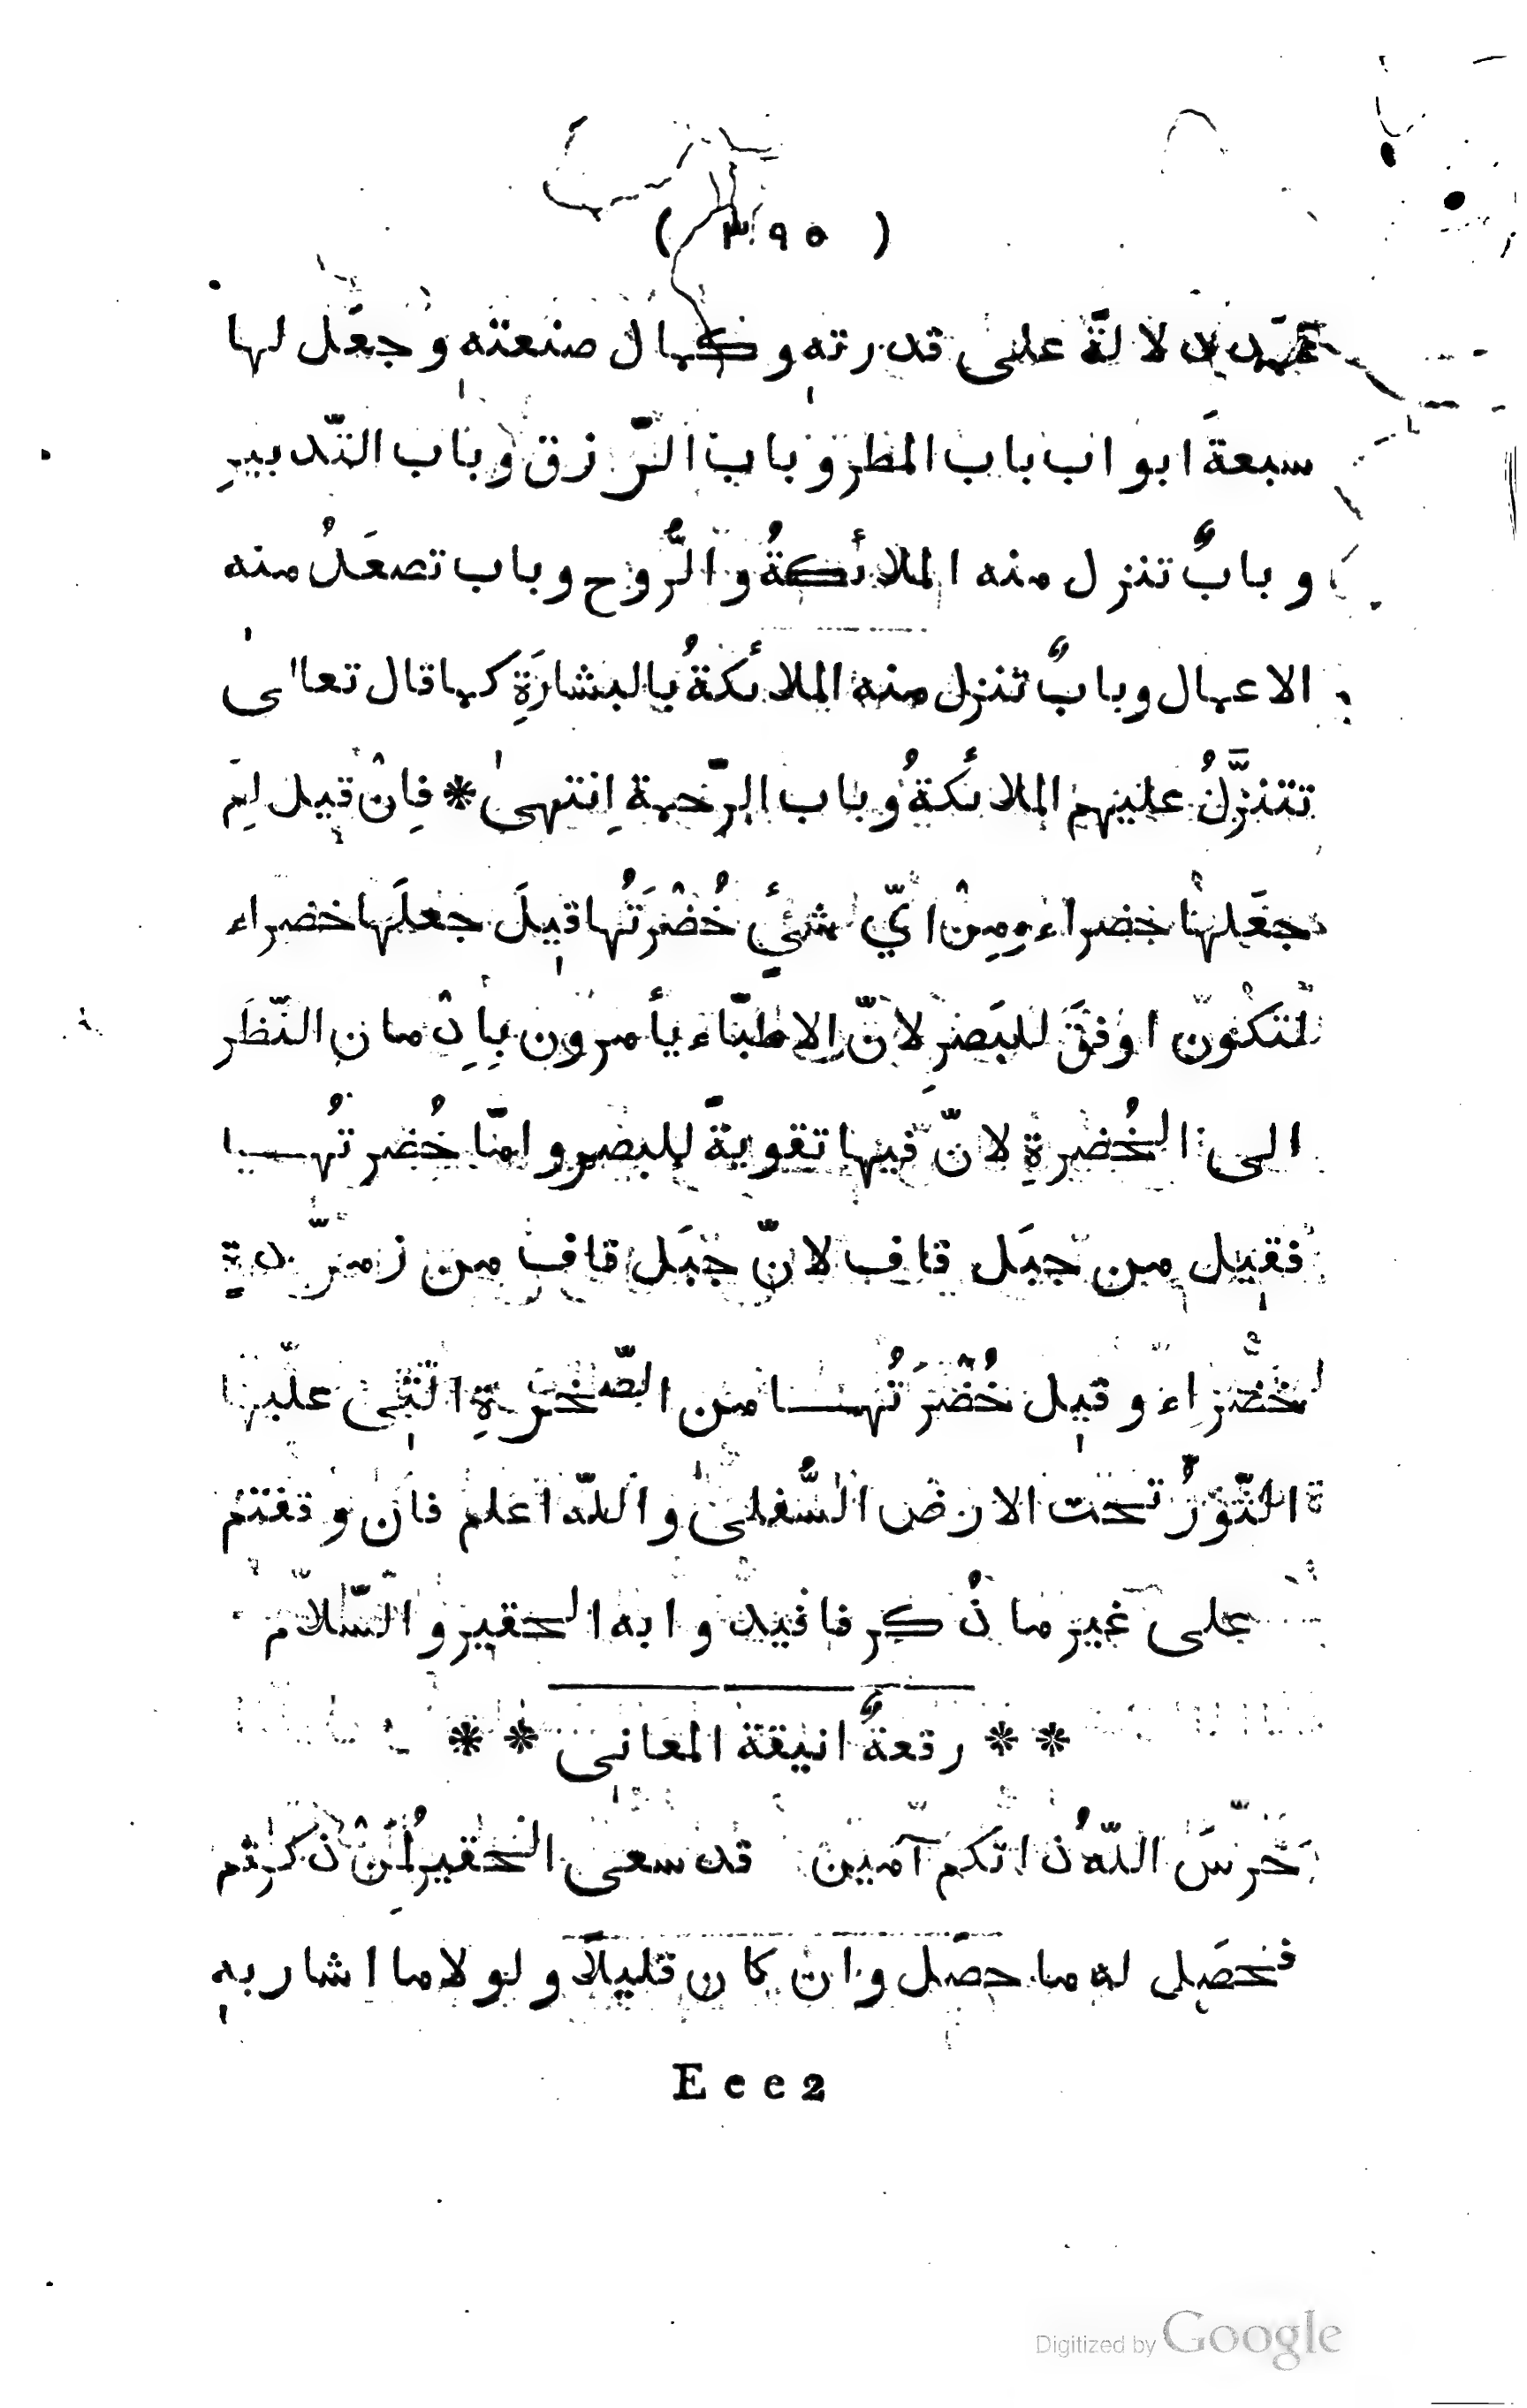 ( ٣٩٥ )
دلالةً على قدرته وكمال صنعته وجعَل لها
سبعةَ ابواب باب المطر وباب الرّزق وباب التّدبيرِ
وبابٌ تنزل منه الملائكةُ والرُّوح وباب تصعَدُ منه
الاعمال وبابٌ تنزل منه الملائكةُ بالبشارَةِ كما قال تعالىٰ
تتنزَّلُ عليهم الملائكةُ وباب الرّحمة اِنتهىٰ * فاِنْ قيل لِمَ
جعَلها خضراء ومِنْ ايّ شئٍ خُضْرَتُها قيلَ جعلَها خضراء
لتَكُون اوفقَ للبَصرِ لِانّ الاطبّاء يأمرون بِاِدْمان النّظَر
الى الخُضرةِ لانّ فيها تقويةً للبصر وامّا خُضرتُها
فقيل من جبَل قاف لانّ جبَل قاف من زمرّدةٍ
خضراء وقيل خُضْرَتُها من الصّخرةِ الّتى عليها
الثّورُ تحت الارض السُّفلىٰ واللّه اعلم فان وقفتم
على غير ما ذُكر فافيدوا به الحقير والسّلام
* * رقعةٌ انيقة المعانى * *
حَرَسَ اللّهُ ذاتكم آمين قد سعى الحقيرُ لِمَنْ ذكرتم
فحصَل له ما حصَل وان كان قليلاً ولولا ما اشار به
Eee2
Digitized by Google